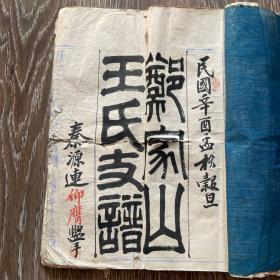 民國辛酉孟秋穀旦
鄭家山
王氏支譜
秦源連仰膺盥手